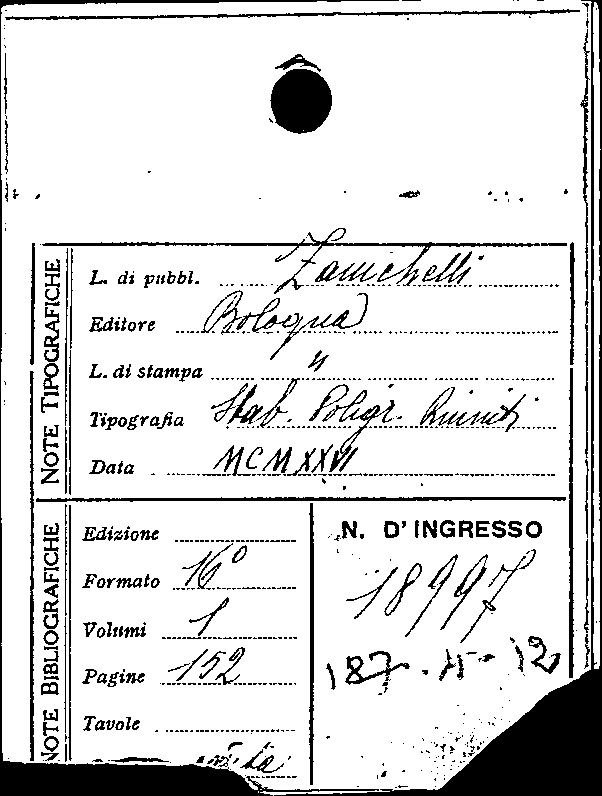 NOTE TIPOGRAFICHE
L. di pubbl. Zanichelli
Editore Bologna
L. di stampa "
Tipografia Stab. Poligr. Riuniti
Data MCMXXVI
NOTE BIBLIOGRAFICHE
Edizione
Formato 16°
Volumi 1
Pagine 152
Tavole
N. D'INGRESSO
18997
187. - 12